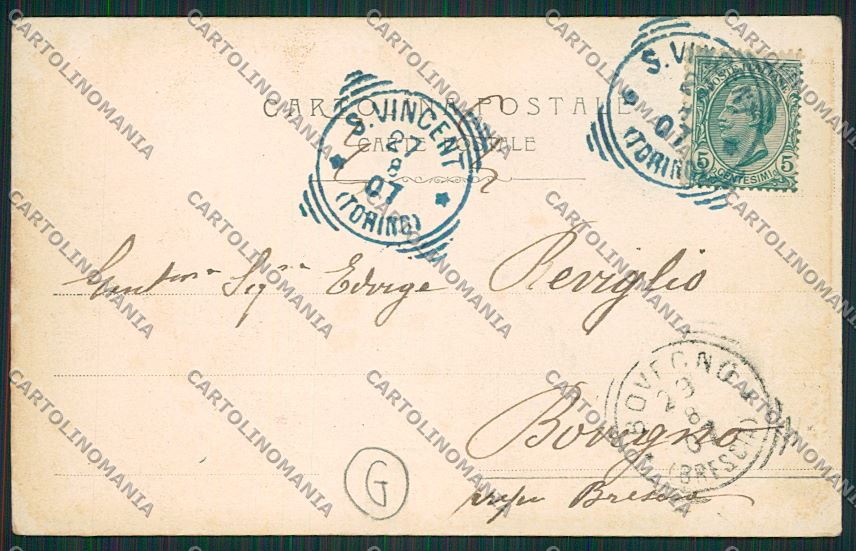 CARTOLINA POSTALE
CARTE POSTALE
S. VINCENT
27
8
07
(TORINO)
S. VIN
07
(TORINO)
POSTE ITALIANE
5 CENTESIMI 5
Gentma Sigra Edvige Reviglio
BOVEGNO
23
8
(BRESCIA)
Bovegno
Brescia
G
CARTOLINOMANIA